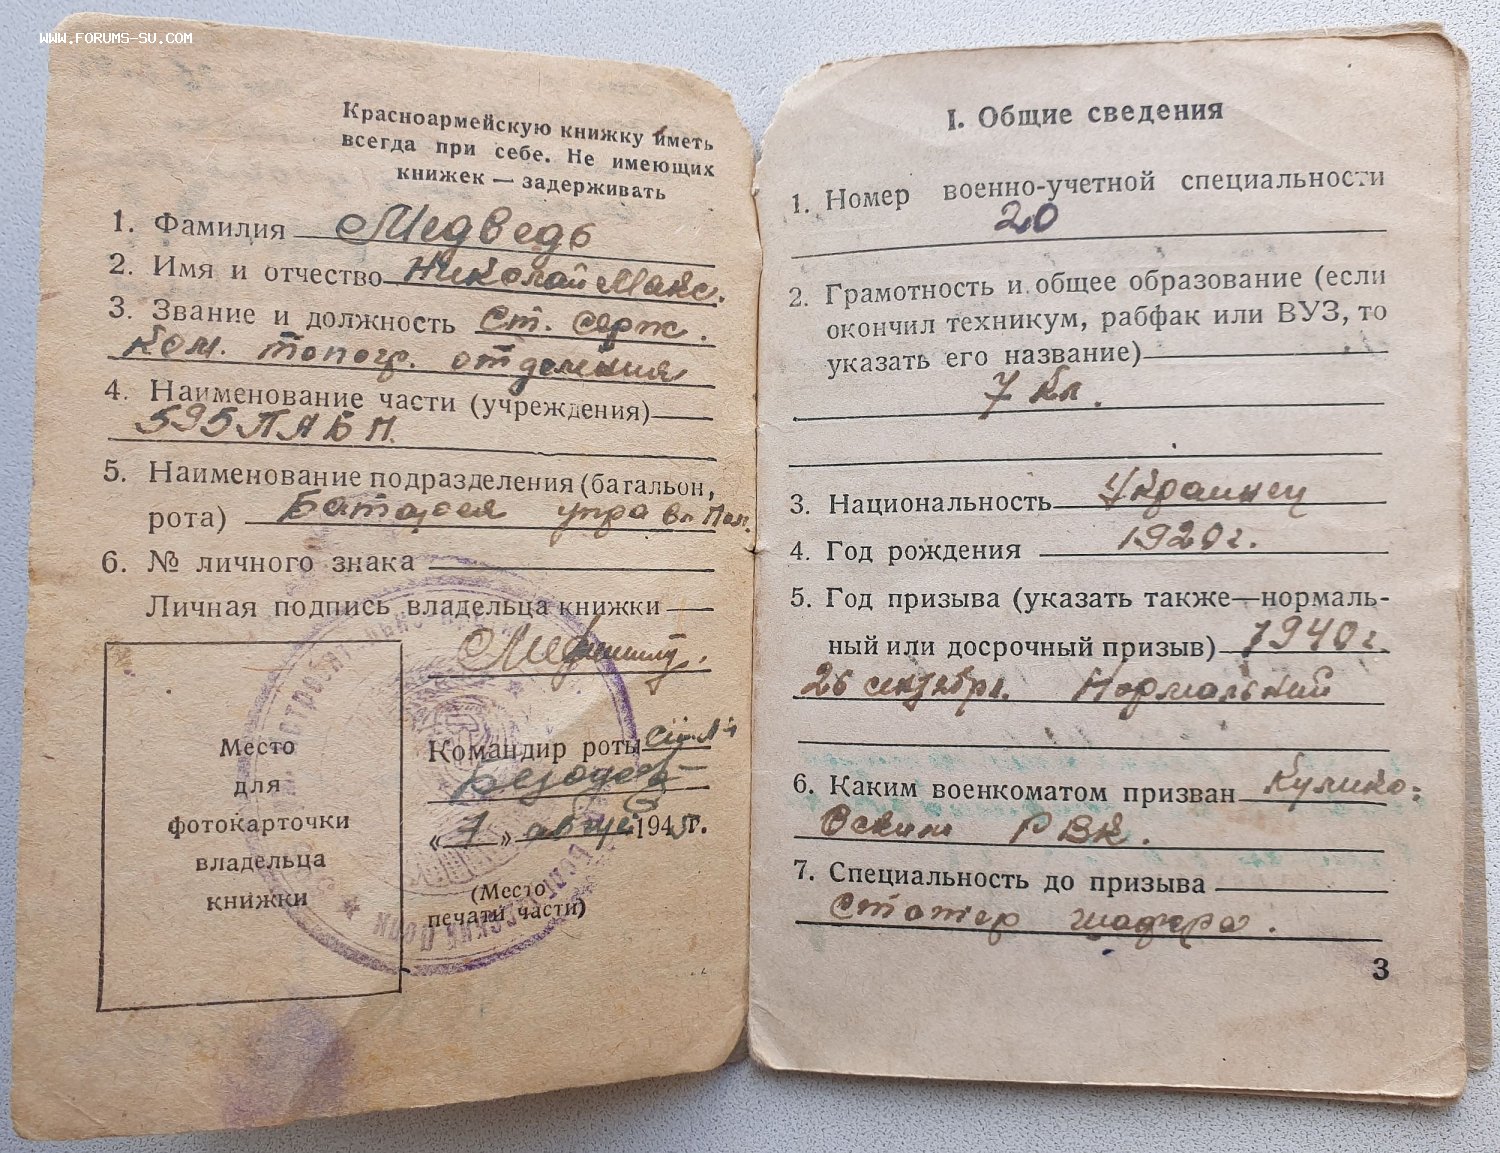 WWW.FORUMS-SU.COM
Красноармейскую книжку иметь
всегда при себе. Не имеющих
книжек — задерживать
1. Фамилия Медведь
2. Имя и отчество Николай Макс.
3. Звание и должность Ст. серж.
Ком. топогр. отделения
4. Наименование части (учреждения)
595 ПАБП.
5. Наименование подразделения (батальон,
рота) Батарея управл
6. № личного знака
Личная подпись владельца книжки
Место
для
фотокарточки
владельца
книжки
Командир роты
«7» 1945 г.
(Место
печати части)
I. Общие сведения
1. Номер военно-учетной специальности
20
2. Грамотность и общее образование (если
окончил техникум, рабфак или ВУЗ, то
указать его название)
7 кл.
3. Национальность Украинец
4. Год рождения 1920 г.
5. Год призыва (указать также—нормаль-
ный или досрочный призыв) 1940 г.
26 Нормальный
6. Каким военкоматом призван Кулико-
вским РВК.
7. Специальность до призыва
шофера.
3